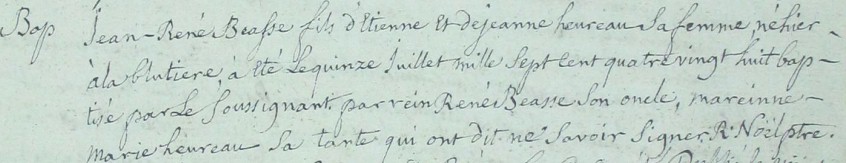 Bap Jean-René Beasse fils d'Etienne Et dejeanne heureau Sa femme, né hier -
àla blutiere, à Eté Lequinze Juillet mille Sept Cent quatre vingt huit bap -
tisé par Le Soussignant parrein René Beasse Son oncle, mareinne -
Marie heureau Sa tante qui ont dit ne Savoir Signer. R. Noël ptre.